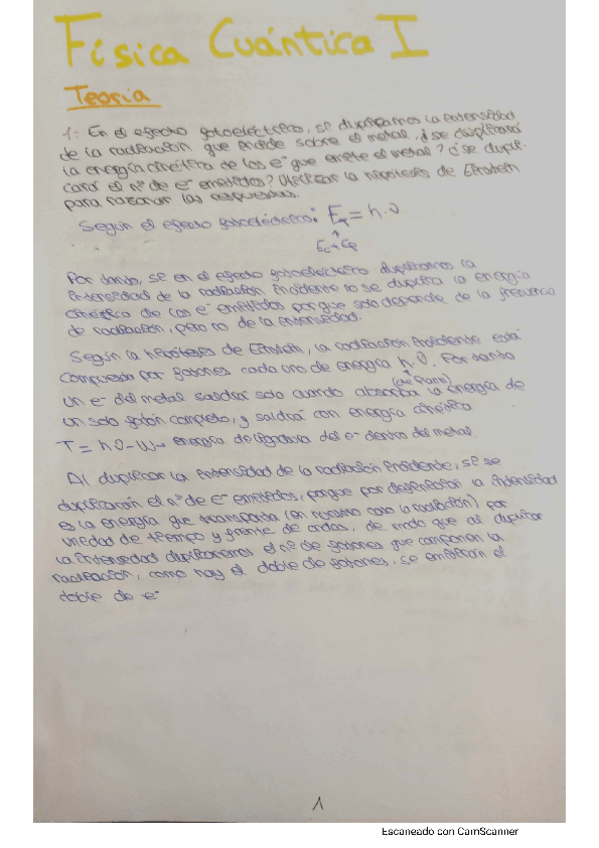 Física Cuántica I
Teoría
1: En el efecto fotoeléctrico, si duplicamos la intensidad
de la radiación que incide sobre el metal, ¿se duplicará
la energía cinética de los e⁻ que emite el metal? ¿se dupli-
cará el nº de e⁻ emitidos? Utilizar la hipótesis de Einstein
para razonar las respuestas.
Según el efecto fotoeléctrico: E = h·υ
Por tanto, si en el efecto fotoeléctrico duplicamos la
intensidad de la radiación incidente no se duplica la energía
cinética de los e⁻ emitidos porque solo depende de la frecuencia
de radiación, pero no de la intensidad.
Según la hipótesis de Einstein, la radiación incidente está
compuesta por fotones cada uno de energía h·υ. Por tanto
(de Planck)
un e⁻ del metal saldrá solo cuando absorba la energía de
un solo fotón completo, y saldrá con energía cinética
T = hυ - W → energía de ligadura del e⁻ dentro del metal.
Al duplicar la intensidad de la radiación incidente, si se
duplicarán el nº de e⁻ emitidos, porque por definición la intensidad
es la energía que transporta (en nuestro caso la radiación) por
unidad de tiempo y frente de ondas, de modo que al duplicar
la intensidad duplicaremos el nº de fotones que componen la
radiación, como hay el doble de fotones, se emitirán el
doble de e⁻
1
Escaneado con CamScanner